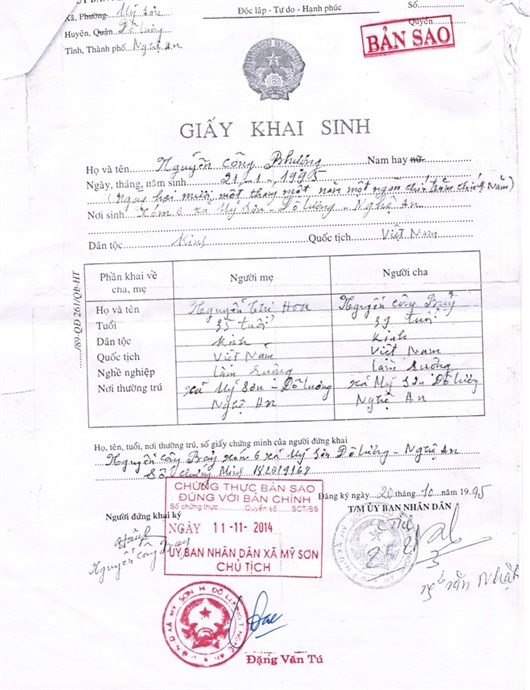 Xã, Phường Mỹ Sơn
Huyện, Quận Đô Lương
Tỉnh, Thành phố Nghệ An
Độc lập - Tự do - Hạnh phúc
Số
Quyển
BẢN SAO
GIẤY KHAI SINH
Họ và tên Nguyễn Công Phượng Nam hay nữ
Ngày, tháng, năm sinh 21.1.1995
(Ngày hai mươi một tháng một năm một ngàn chín trăm chín Năm)
Nơi sinh Xóm 6 xã Mỹ Sơn - Đô Lương - Nghệ An
Dân tộc Kinh Quốc tịch Việt Nam
Phần khai về cha, mẹ Người mẹ Người cha
Họ và tên Nguyễn Thị Hoa Nguyễn Công Bảy
Tuổi 35 tuổi 39 tuổi
Dân tộc Kinh Kinh
Quốc tịch Việt Nam Việt Nam
Nghề nghiệp Làm ruộng Làm ruộng
Nơi thường trú xã Mỹ Sơn - Đô Lương xã Mỹ Sơn Đô Lương
Nghệ An Nghệ An
Họ, tên, tuổi, nơi thường trú, số giấy chứng minh của người đứng khai
Nguyễn Công Bảy xóm 6 xã Mỹ Sơn Đô Lương - Nghệ An
Số chứng minh 182019168
CHỨNG THỰC BẢN SAO
ĐÚNG VỚI BẢN CHÍNH
Số chứng thực Quyển số SCT/SS
NGÀY 11-11-2014
ỦY BAN NHÂN DÂN XÃ MỸ SƠN
CHỦ TỊCH
Đăng ký ngày 20 tháng 10 năm 1995
Người đứng khai ký
T/M ỦY BAN NHÂN DÂN
Nguyễn Công Bảy
Đặng Văn Tú